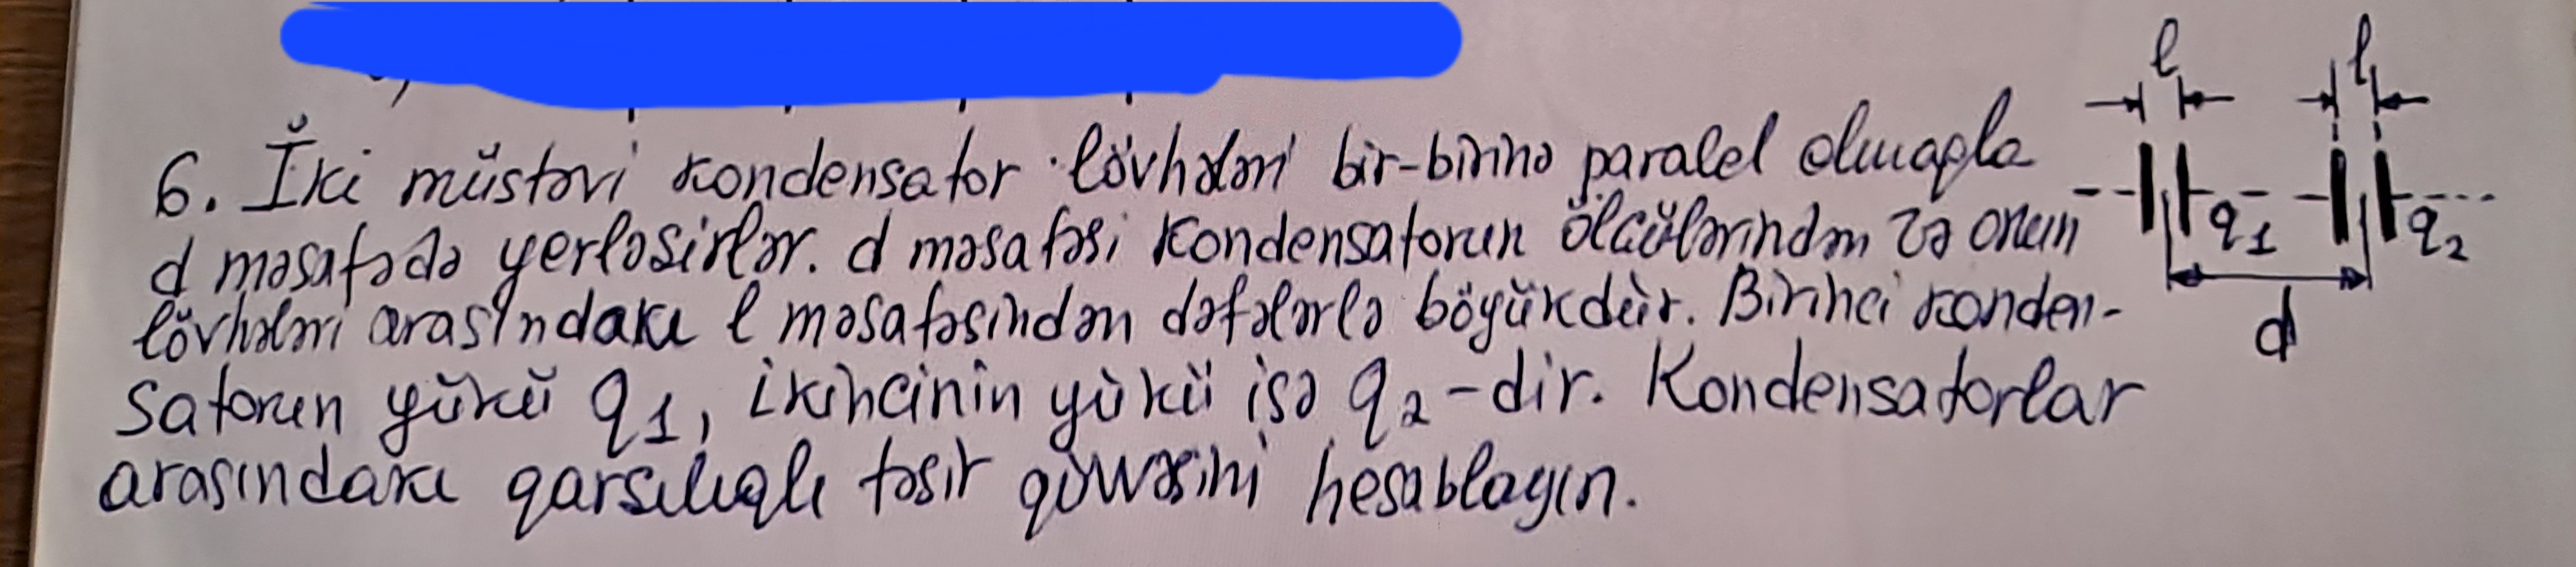 l l
6. İki müstəvi kondensator lövhələri bir-birinə paralel olmaqla
d məsafədə yerləşirlər. d məsafəsi kondensatorun ölçülərindən və onun
lövhələri arasındakı l məsafəsindən dəfələrlə böyükdür. Birinci konden-
satorun yükü q1, ikincinin yükü isə q2-dir. Kondensatorlar
arasındakı qarşılıqlı təsir qüvvəsini hesablayın.
q1 q2
d